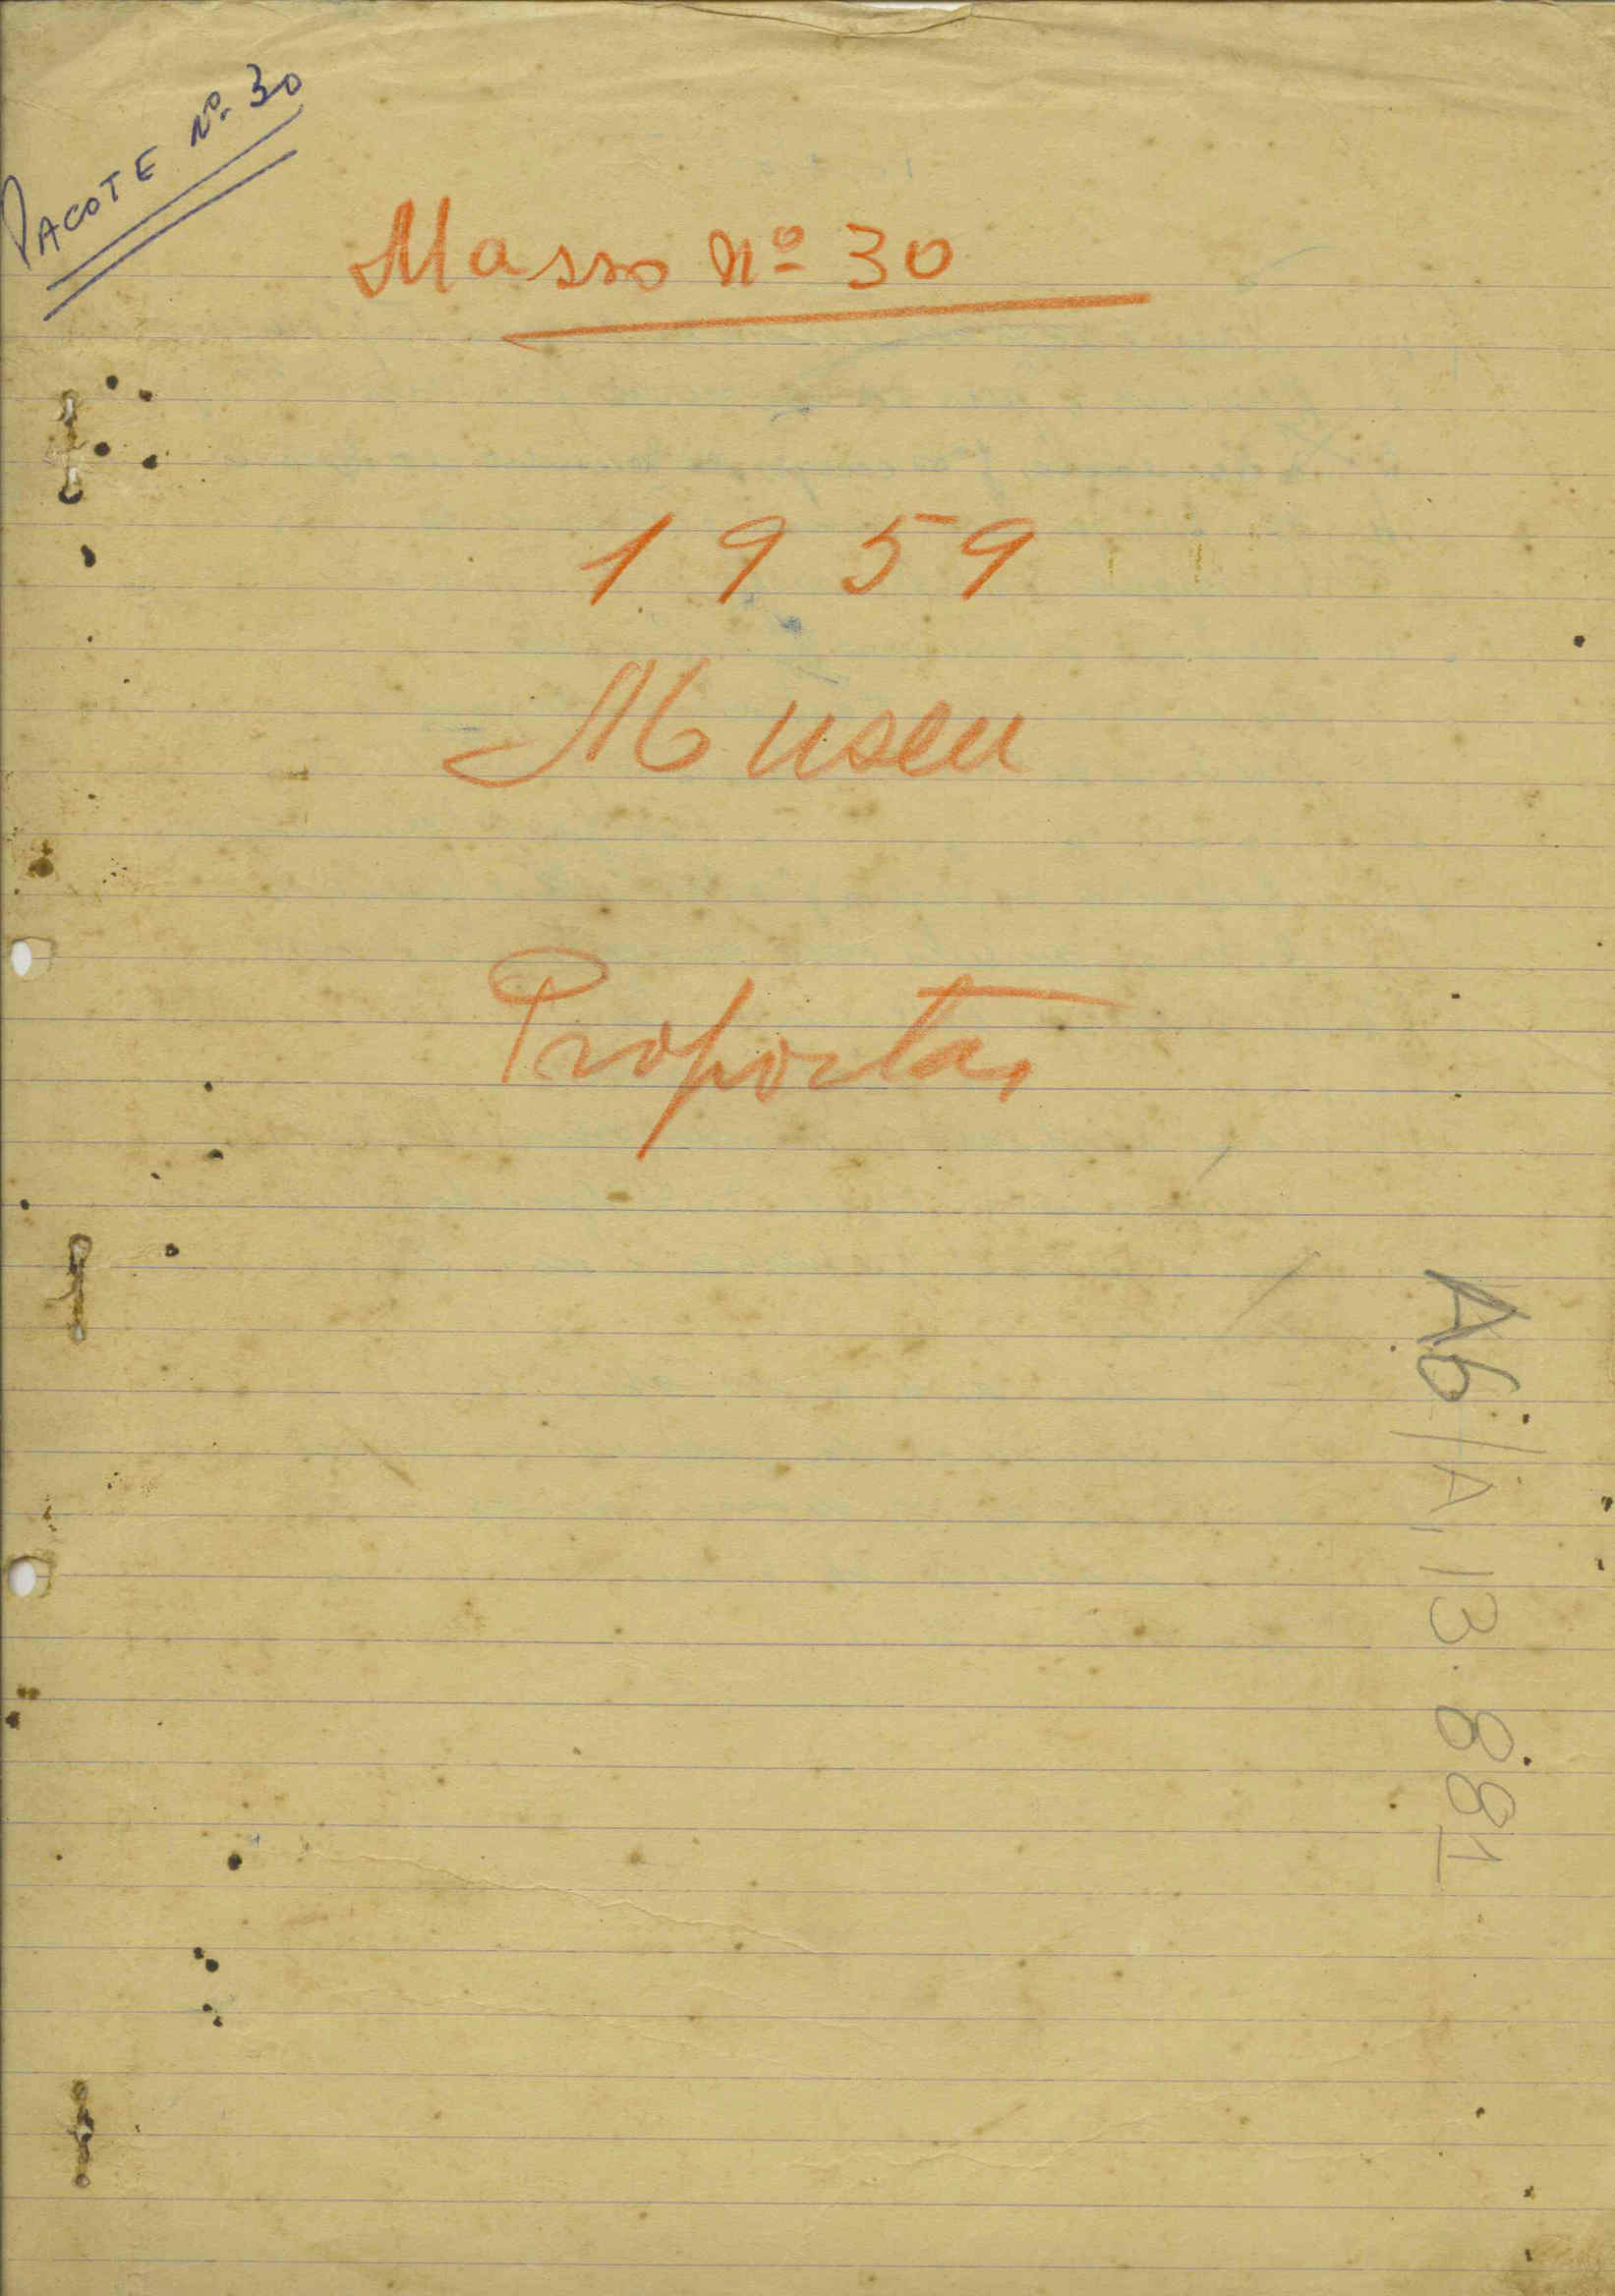 PACOTE Nº 30
Masso nº 30
1959
Museu
Propostas
A6/A, 13.881